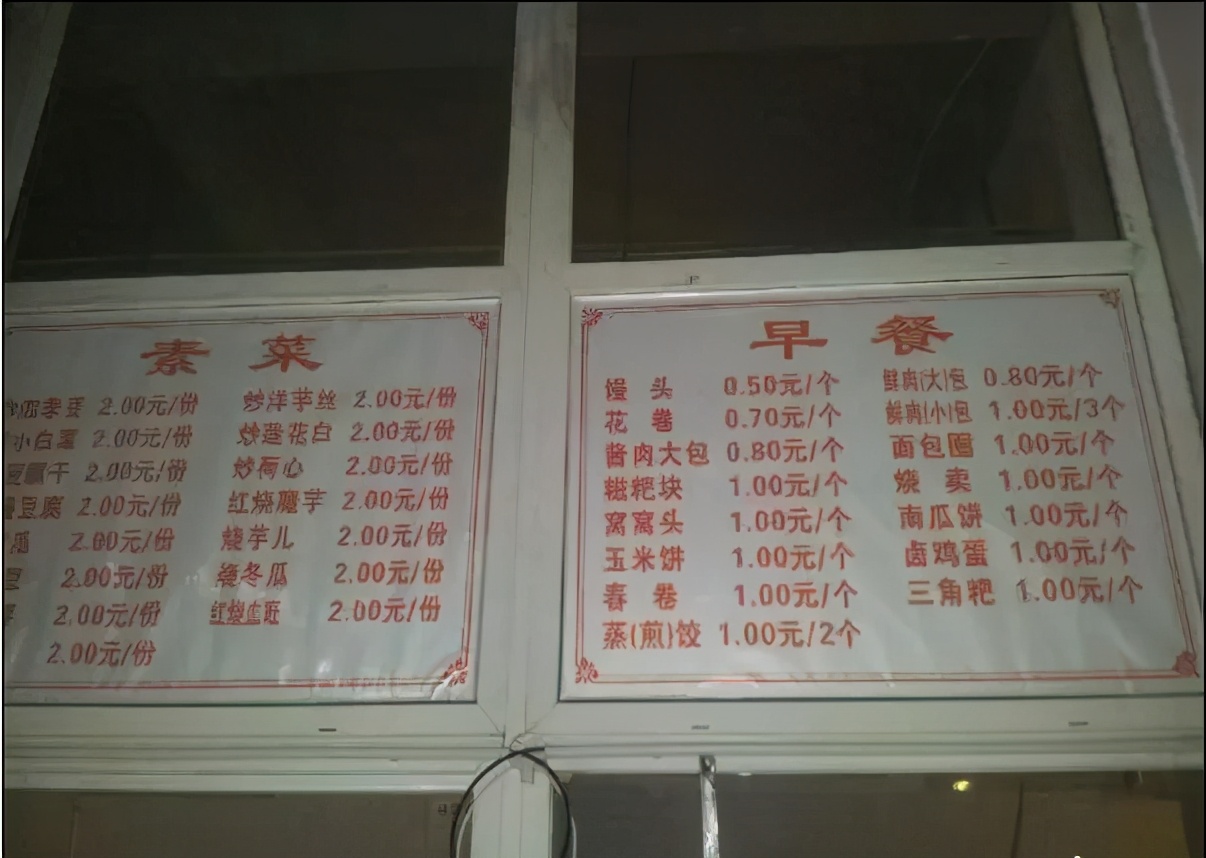 素菜
2.00元/份 炒洋芋丝 2.00元/份
小白 2.00元/份 炒莲花白 2.00元/份
豆腐干 2.00元/份 炒荷心 2.00元/份
豆腐 2.00元/份 红烧魔芋 2.00元/份
2.00元/份 烧芋儿 2.00元/份
豆 2.00元/份 烧冬瓜 2.00元/份
2.00元/份 红烧血旺 2.00元/份
2.00元/份
早餐
馒头 0.50元/个 鲜肉(大)包 0.80元/个
花卷 0.70元/个 鲜肉(小)包 1.00元/3个
酱肉大包 0.80元/个 面包 1.00元/个
糍粑块 1.00元/个 烧卖 1.00元/个
窝窝头 1.00元/个 南瓜饼 1.00元/个
玉米饼 1.00元/个 卤鸡蛋 1.00元/个
春卷 1.00元/个 三角粑 1.00元/个
蒸(煎)饺 1.00元/2个